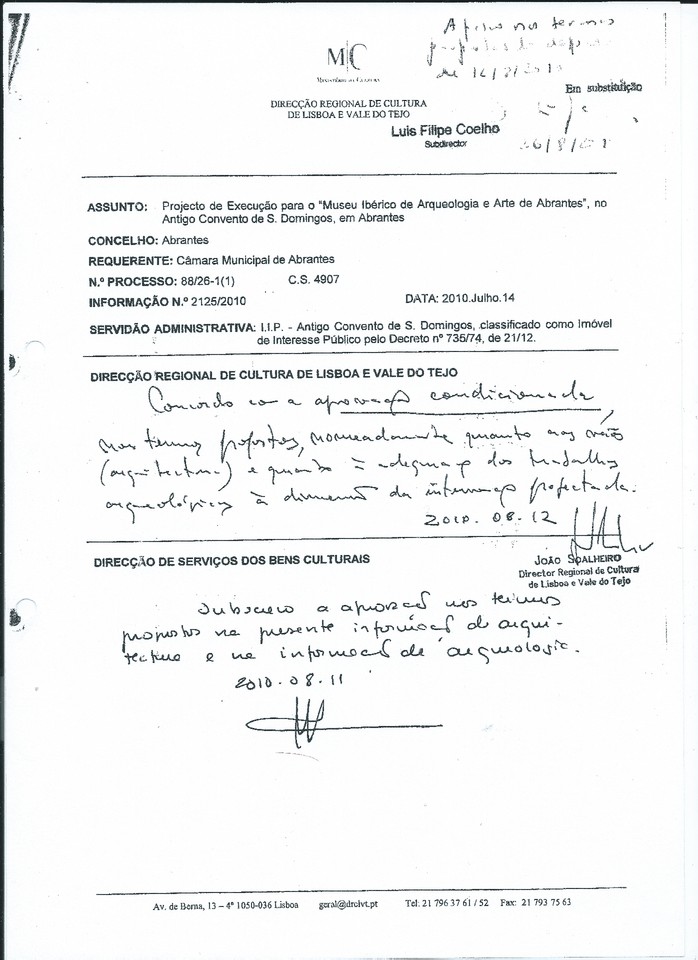 Aprovo nos termos
propostos
de 12/8/2010
Em substituição
M|C
MINISTÉRIO DA CULTURA
DIRECÇÃO REGIONAL DE CULTURA
DE LISBOA E VALE DO TEJO
Luis Filipe Coelho
Subdirector
ASSUNTO: Projecto de Execução para o "Museu Ibérico de Arqueologia e Arte de Abrantes", no
Antigo Convento de S. Domingos, em Abrantes
CONCELHO: Abrantes
REQUERENTE: Câmara Municipal de Abrantes
N.º PROCESSO: 88/26-1(1) C.S. 4907
INFORMAÇÃO N.º 2125/2010 DATA: 2010.Julho.14
SERVIDÃO ADMINISTRATIVA: I.I.P. - Antigo Convento de S. Domingos, classificado como Imóvel
de Interesse Público pelo Decreto nº 735/74, de 21/12.
DIRECÇÃO REGIONAL DE CULTURA DE LISBOA E VALE DO TEJO
Concordo com a aprovação condicionada
nos termos propostos, nomeadamente quanto aos vãos
(arquitectura) e quanto à adequação dos trabalhos
arqueológicos à dimensão da intervenção projectada.
2010.08.12
JOÃO SOALHEIRO
Director Regional de Cultura
de Lisboa e Vale do Tejo
DIRECÇÃO DE SERVIÇOS DOS BENS CULTURAIS
Subscrevo a aprovação nos termos
propostos na presente informação de arqui-
tectura e na informação de arqueologia.
2010.08.11
Av. de Berna, 13 – 4º 1050-036 Lisboa geral@drclvt.pt Tel: 21 796 37 61 / 52 Fax: 21 793 75 63